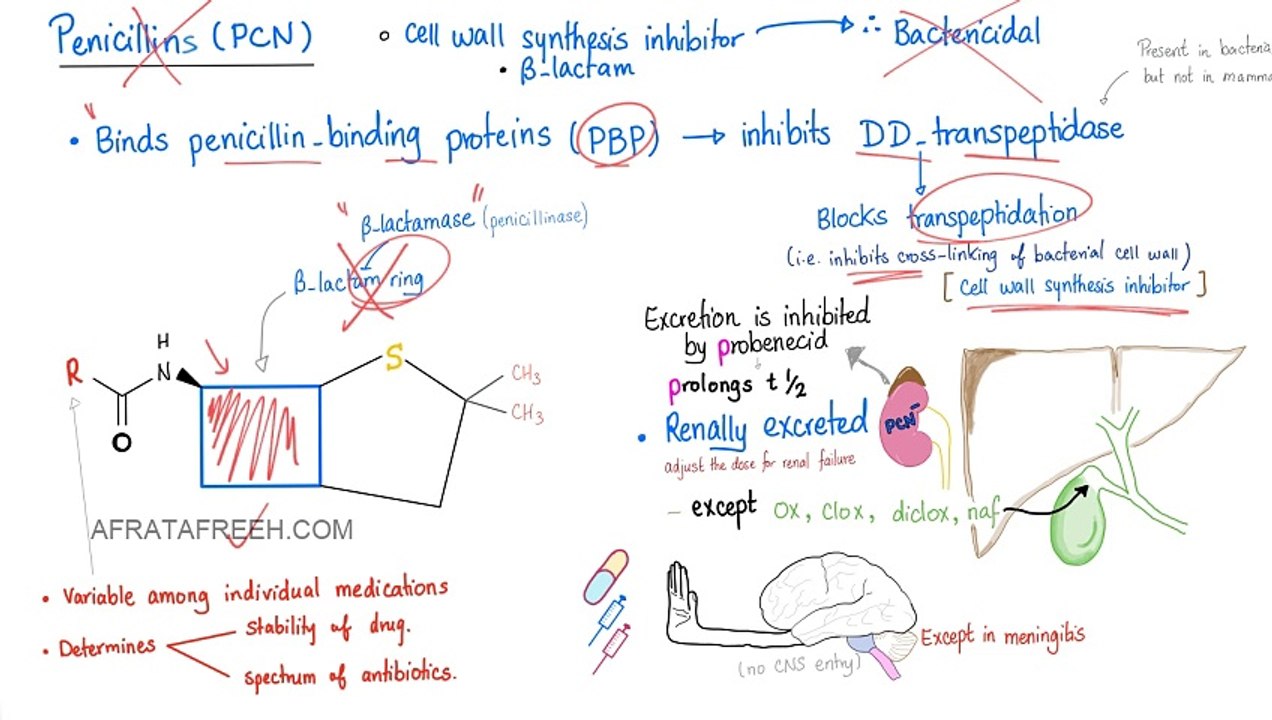 Penicillins (PCN)
° Cell wall synthesis inhibitor
∴ Bactericidal
• β-lactam
Present in bacteria
but not in mamma
• Binds penicillin-binding proteins (PBP) → inhibits DD-transpeptidase
Blocks transpeptidation
(i.e. inhibits cross-linking of bacterial cell wall)
[Cell wall synthesis inhibitor]
β-lactamase (penicillinase)
β-lactam ring
H
N
R
O
S
CH3
CH3
AFRATAFREEH.COM
• Variable among individual medications
• Determines
stability of drug.
spectrum of antibiotics.
Excretion is inhibited
by probenecid
prolongs t ½
• Renally excreted
adjust the dose for renal failure
– except ox, clox, diclox, naf
PCN⁻
(no CNS entry)
Except in meningitis